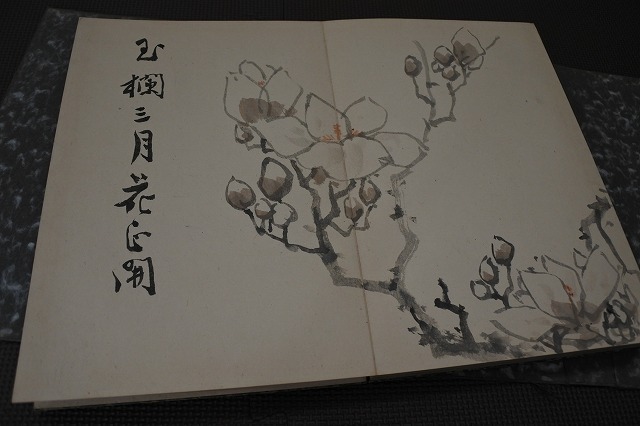 玉欄三月花正開